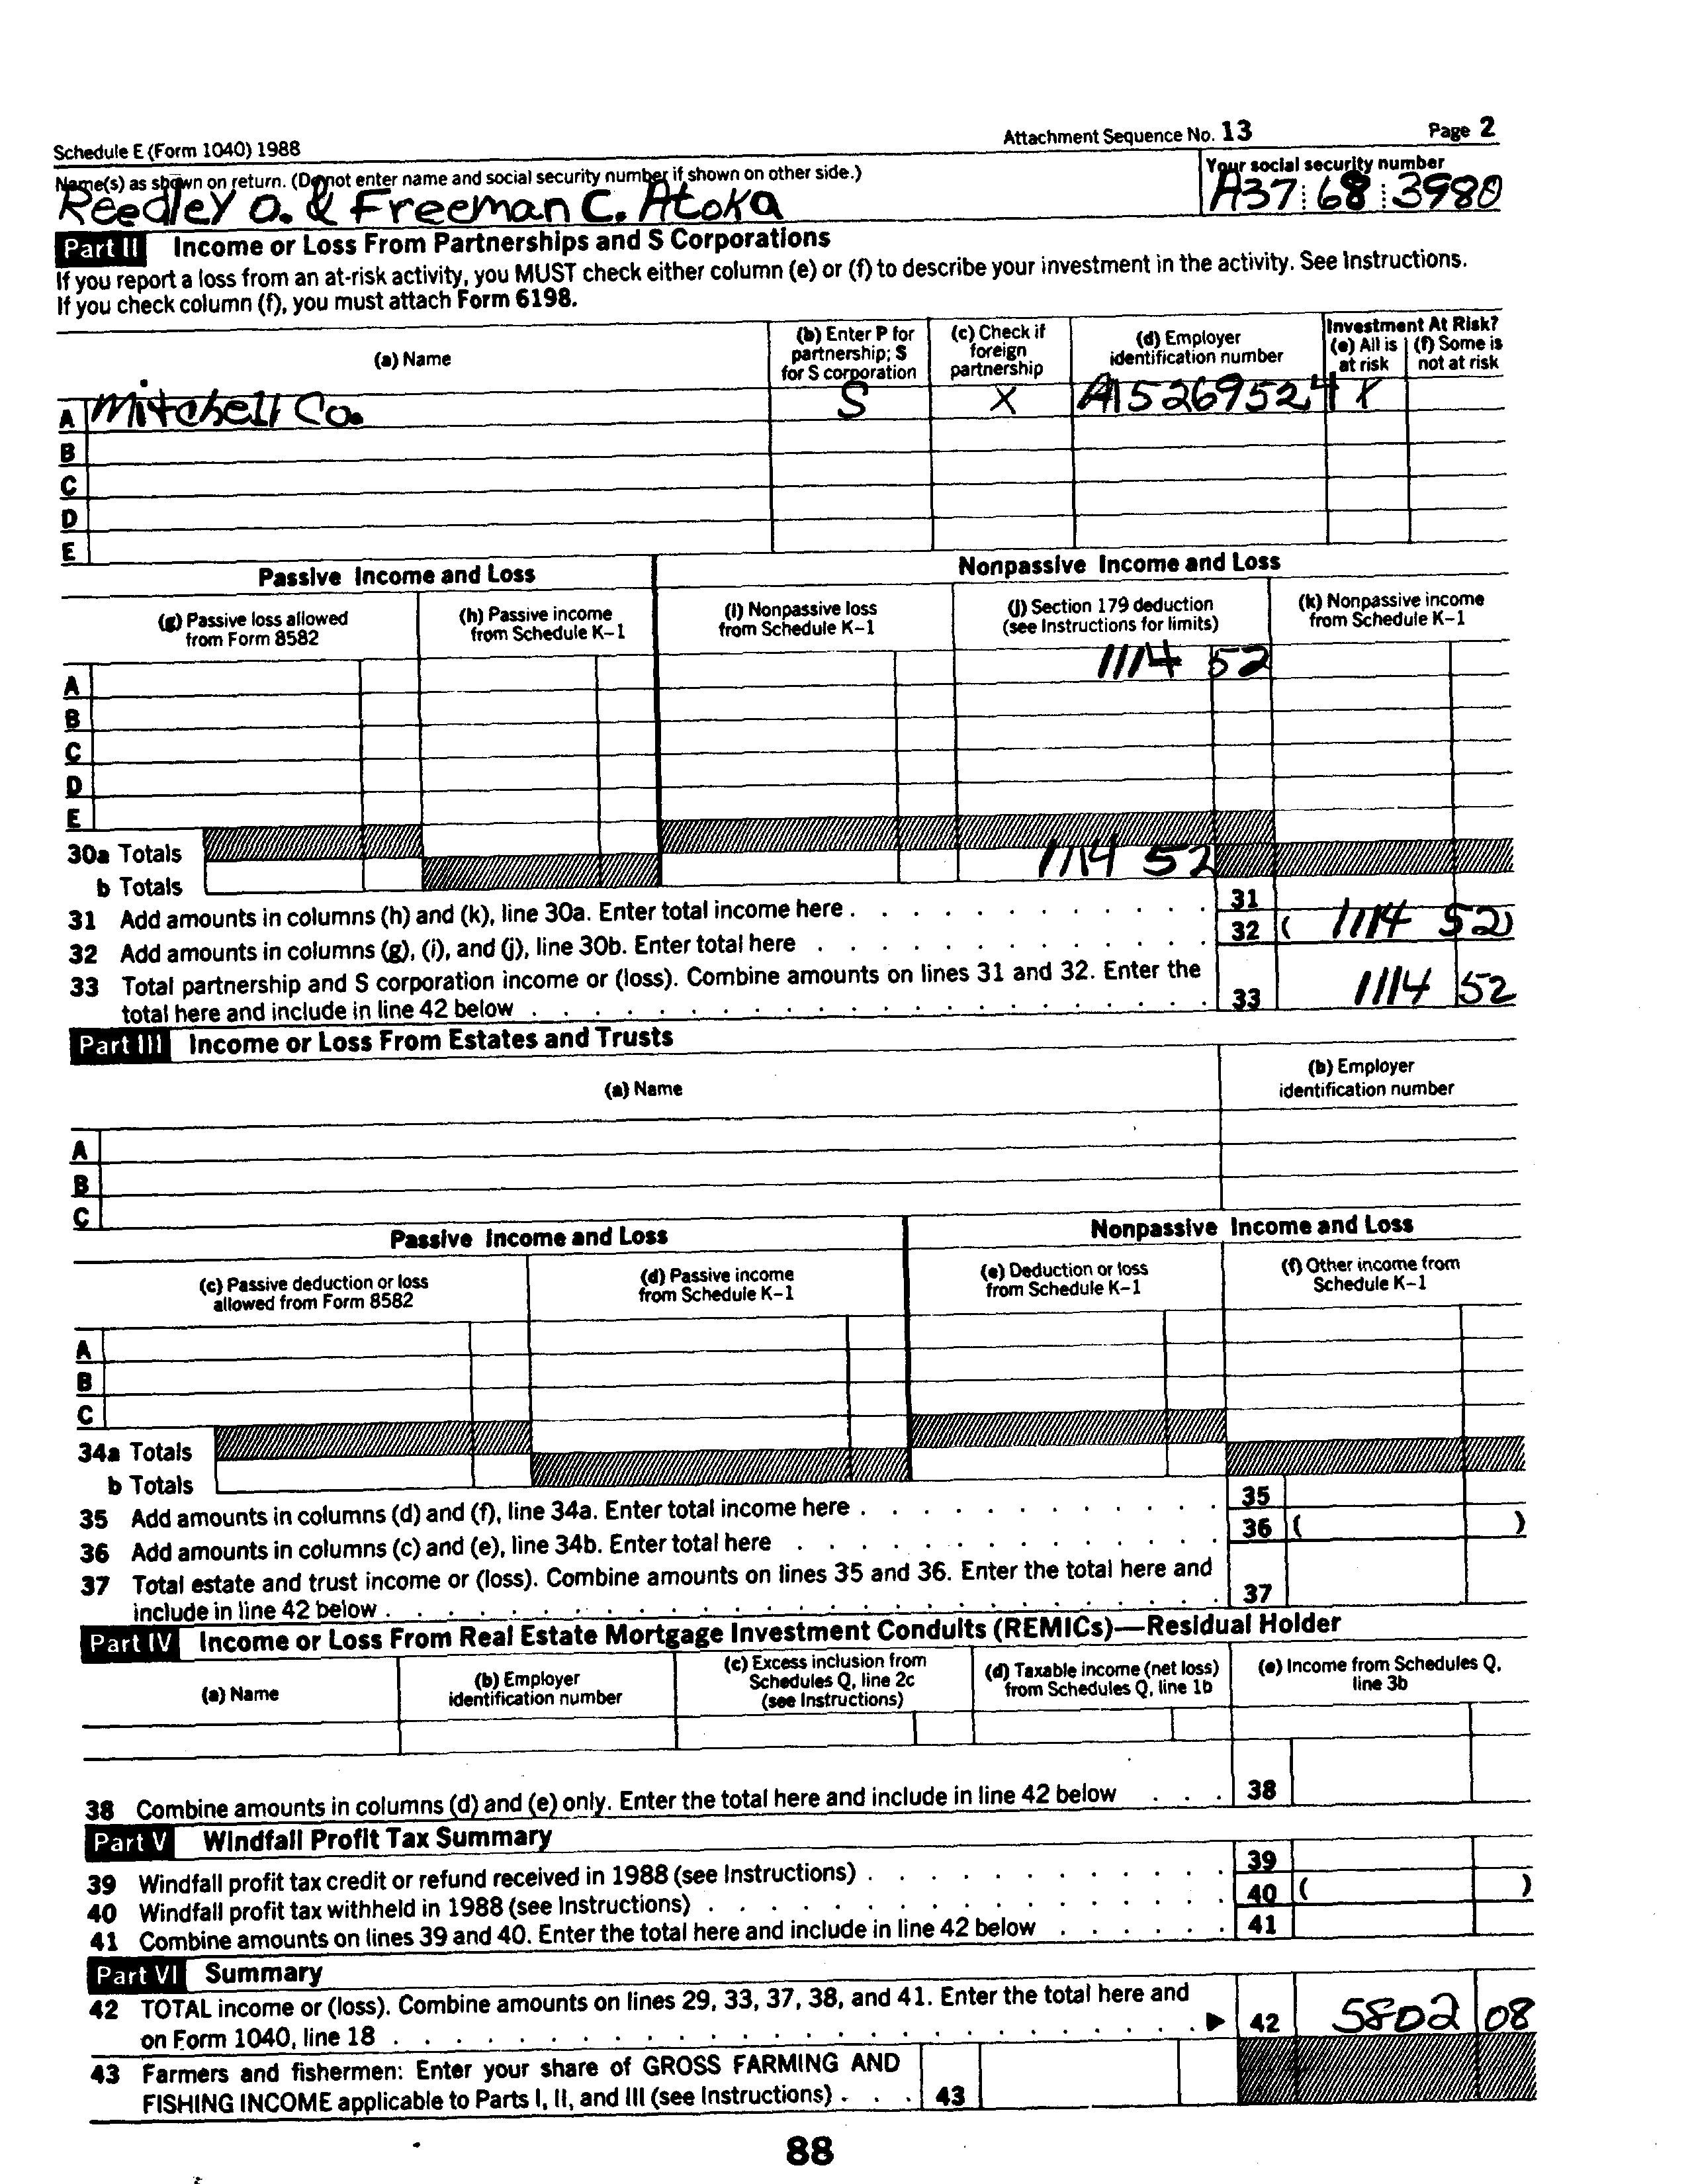 Schedule E (Form 1040) 1988 Attachment Sequence No. 13 Page 2
Name(s) as shown on return. (Do not enter name and social security number if shown on other side.) Your social security number
Reedley O. & Freeman C. Atoka A37 68 3980
Part II Income or Loss From Partnerships and S Corporations
If you report a loss from an at-risk activity, you MUST check either column (e) or (f) to describe your investment in the activity. See Instructions.
If you check column (f), you must attach Form 6198.
(a) Name
(b) Enter P for partnership; S for S corporation
(c) Check if foreign partnership
(d) Employer identification number
Investment At Risk?
(e) All is at risk
(f) Some is not at risk
A Mitchell Co. S X A15269524 X
B
C
D
E
Passive Income and Loss Nonpassive Income and Loss
(g) Passive loss allowed from Form 8582
(h) Passive income from Schedule K–1
(i) Nonpassive loss from Schedule K–1
(j) Section 179 deduction (see Instructions for limits)
(k) Nonpassive income from Schedule K–1
A 1114 52
B
C
D
E
30a Totals
b Totals 1114 52
31 Add amounts in columns (h) and (k), line 30a. Enter total income here . 31
32 Add amounts in columns (g), (i), and (j), line 30b. Enter total here . 32 ( 1114 52)
33 Total partnership and S corporation income or (loss). Combine amounts on lines 31 and 32. Enter the
total here and include in line 42 below . 33 1114 52
Part III Income or Loss From Estates and Trusts
(a) Name
(b) Employer identification number
A
B
C
Passive Income and Loss Nonpassive Income and Loss
(c) Passive deduction or loss allowed from Form 8582
(d) Passive income from Schedule K–1
(e) Deduction or loss from Schedule K–1
(f) Other income from Schedule K–1
A
B
C
34a Totals
b Totals
35 Add amounts in columns (d) and (f), line 34a. Enter total income here . 35
36 Add amounts in columns (c) and (e), line 34b. Enter total here . 36 ( )
37 Total estate and trust income or (loss). Combine amounts on lines 35 and 36. Enter the total here and
include in line 42 below . 37
Part IV Income or Loss From Real Estate Mortgage Investment Conduits (REMICs)—Residual Holder
(a) Name
(b) Employer identification number
(c) Excess inclusion from Schedules Q, line 2c (see Instructions)
(d) Taxable income (net loss) from Schedules Q, line 1b
(e) Income from Schedules Q, line 3b
38 Combine amounts in columns (d) and (e) only. Enter the total here and include in line 42 below . . . 38
Part V Windfall Profit Tax Summary
39 Windfall profit tax credit or refund received in 1988 (see Instructions) . 39
40 Windfall profit tax withheld in 1988 (see Instructions) . 40 ( )
41 Combine amounts on lines 39 and 40. Enter the total here and include in line 42 below . 41
Part VI Summary
42 TOTAL income or (loss). Combine amounts on lines 29, 33, 37, 38, and 41. Enter the total here and
on Form 1040, line 18 . ▶ 42 5802 08
43 Farmers and fishermen: Enter your share of GROSS FARMING AND
FISHING INCOME applicable to Parts I, II, and III (see Instructions) . . . 43
88